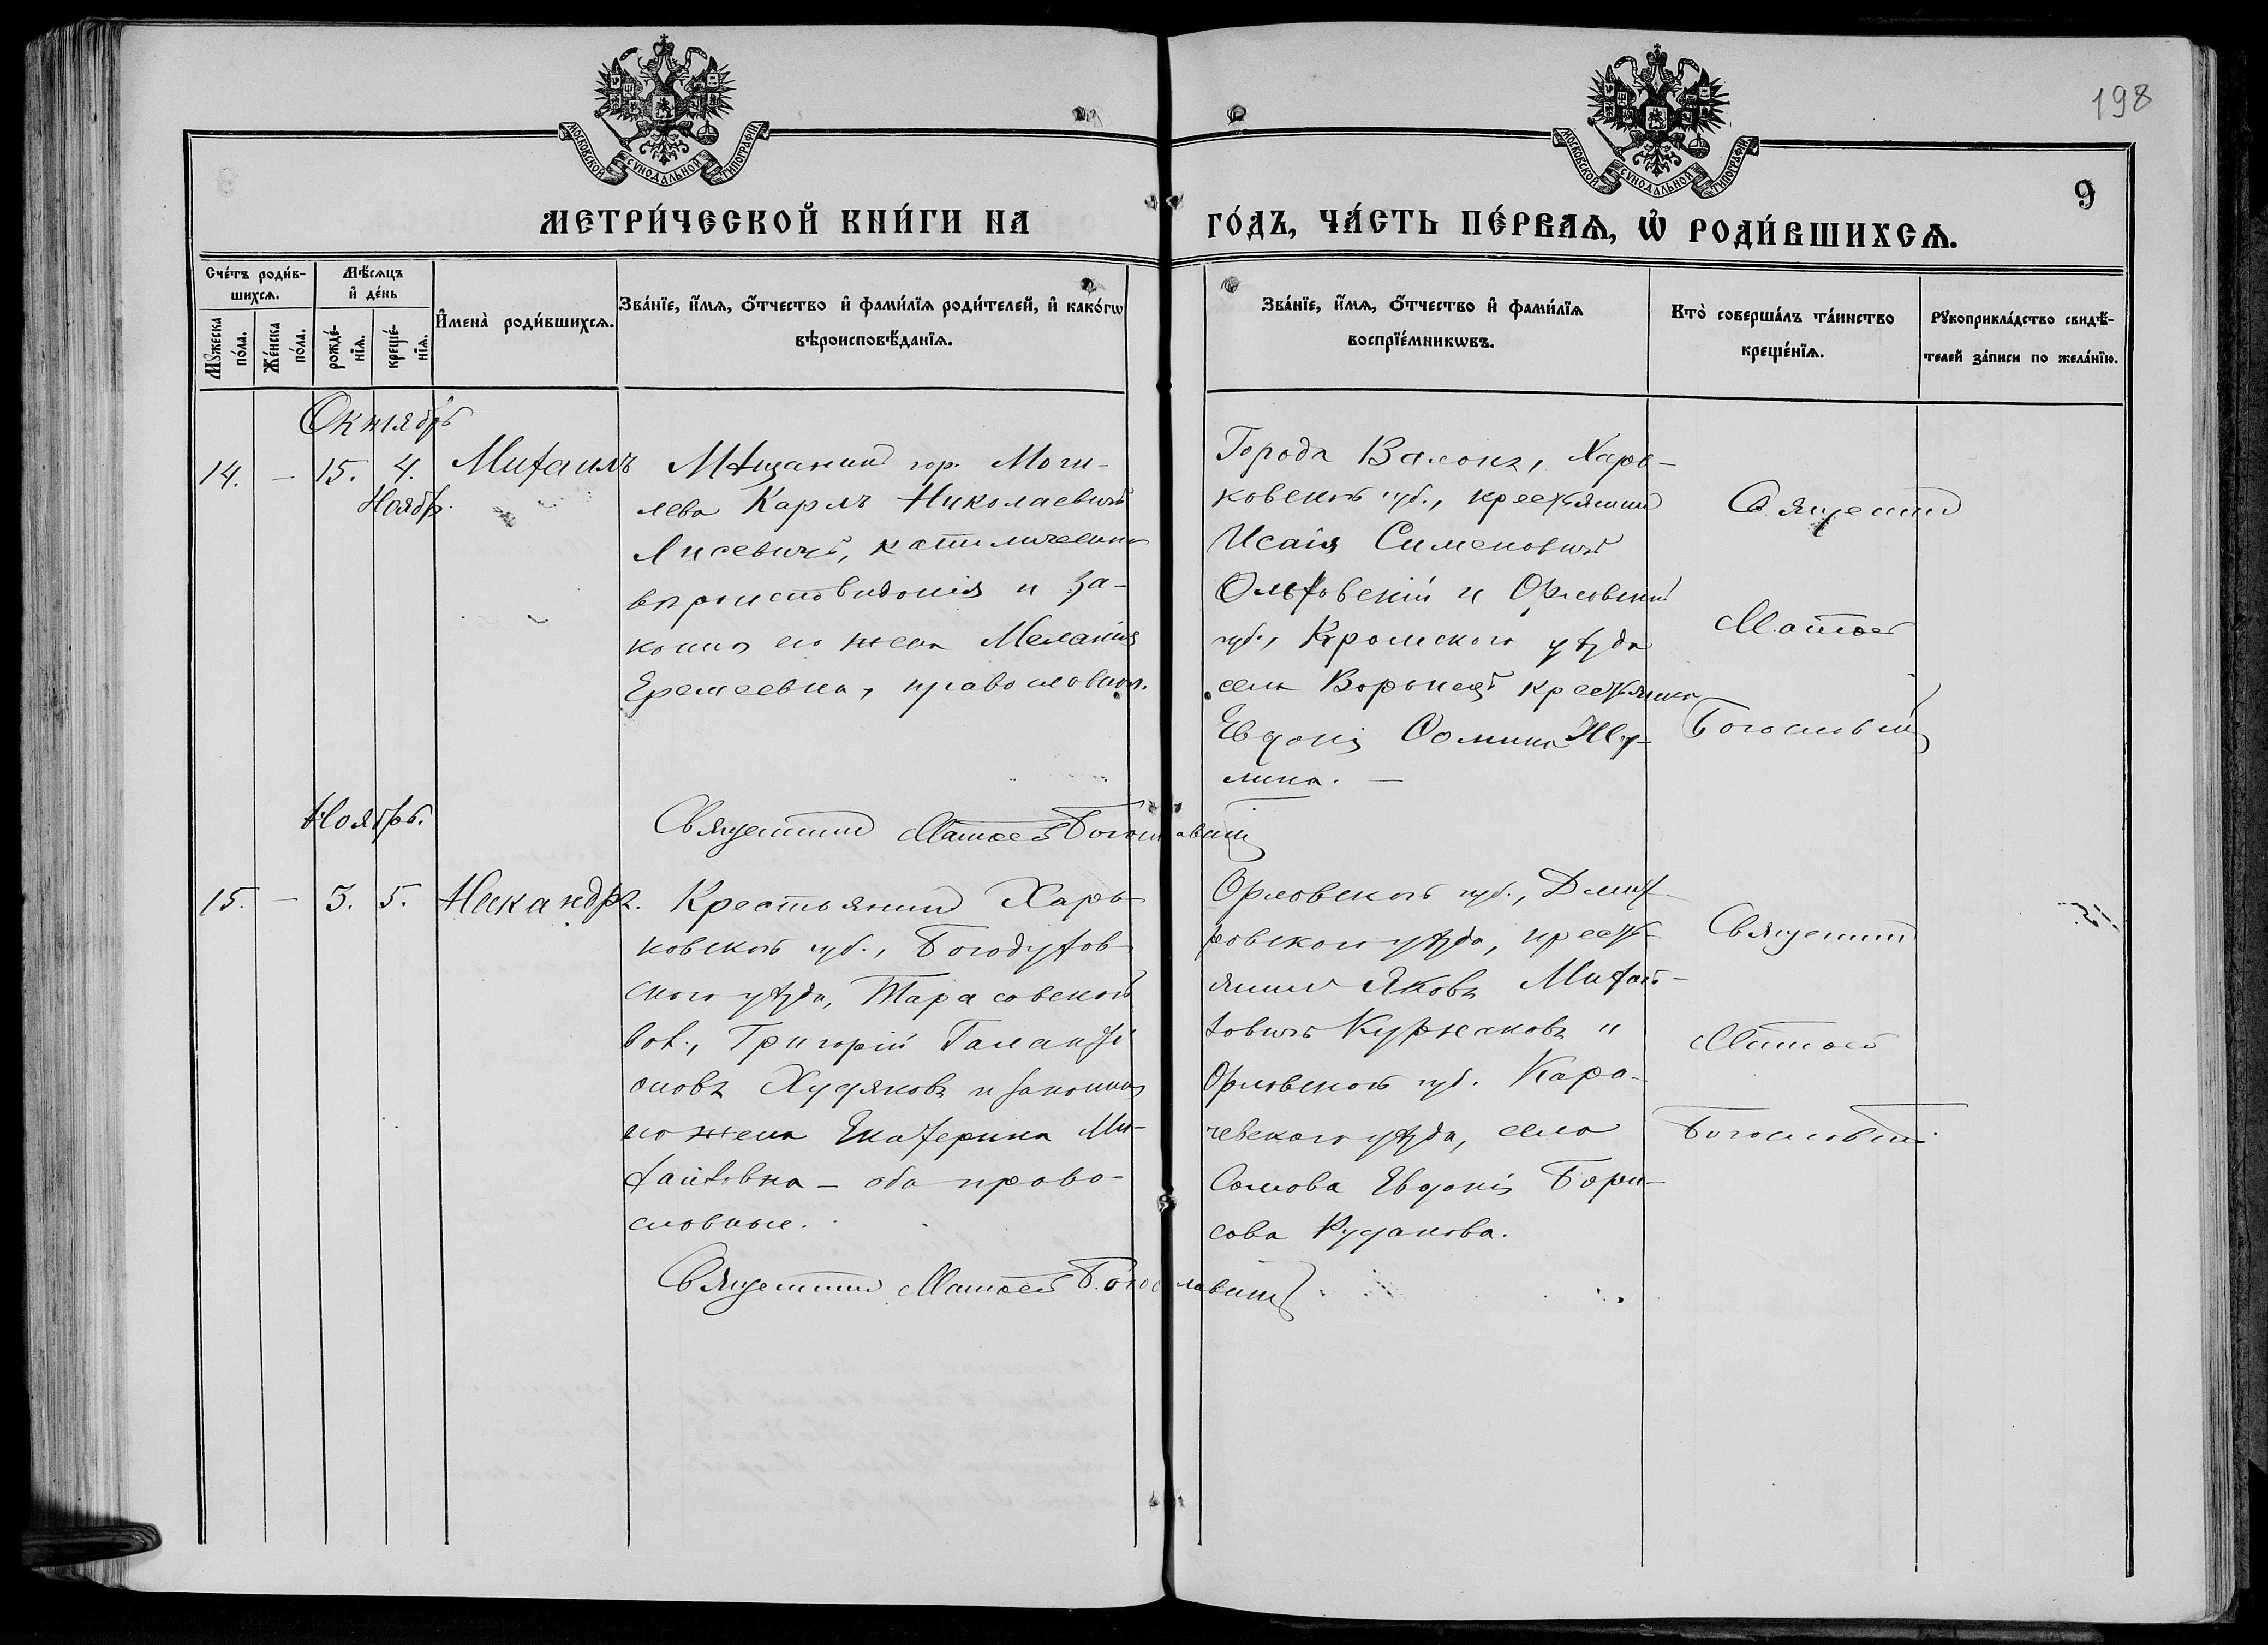 198
МОСКОВСКОЙ СѴНОДАЛЬНОЙ ТИПОГРАФІИ
МОСКОВСКОЙ СѴНОДАЛЬНОЙ ТИПОГРАФІИ
9
МЕТРИ́ЧЕСКОЙ КНИ́ГИ НА ГО́ДЪ, ЧА́СТЬ ПЕ́РВАѦ, Ѡ҆ РОДИ́ВШИХСѦ.
Сче́тъ роди́в-
шихсѧ.
Мꙋ́жеска
по́ла.
Же́нска
по́ла.
Мѣ́сѧцъ
и҆ де́нь
рожде́-
нїѧ.
креще́-
нїѧ.
И҆мена̀ роди́вшихсѧ.
Зва́нїе, и҆́мѧ, ѻ҆́тчество и҆ фами́лїѧ роди́телей, и҆ како́гѡ
вѣроисповѣ́данїѧ.
Зва́нїе, и҆́мѧ, ѻ҆́тчество и҆ фами́лїѧ
воспрїе́мникѡвъ.
Кто̀ соверша́лъ та́инство
креще́нїѧ.
Рꙋкоприкла́дство свидѣ́-
телей за́писи по жела́нїю.
Октябрь
14. — 15. 4. Михаилъ
Ноябр.
Мѣщанинъ гор. Моги-
лева Карлъ Николаевичъ
Лисевичъ, католическаго
вѣроисповѣданія и за-
конная его жена Меланія
Еремеевна, православная.
Города Валокъ, Харь-
ковской губ., крестьянинъ
Исаія Сименовичъ
Ольховскій и Орловской
губ., Кромского уѣзда
села Воронецъ крестьянка
Евдокія Ѳомина Жу-
лина. —
Священникъ
Матѳей
Богословскій
Священникъ Матѳей Богословскій
Ноябрь.
15. — 3. 5. Никандръ.
Крестьянинъ Харь-
ковской губ., Богодухов-
ского уѣзда, Тарасовской
вол., Григорій Галакті
оновъ Худяковъ и законная
его жена Екатерина Ми-
хайловна — оба право-
славные.
Орловской губ., Дмит-
ровского уѣзда, крест-
янинъ Яковъ Михай-
ловичъ Куржаковъ и
Орловской губ. Кара-
чевского уѣзда, села
Сомова Евдокія Бори-
сова Рудакова.
Священникъ
Матѳей
Богословскій
Священникъ Матѳей Богословскій